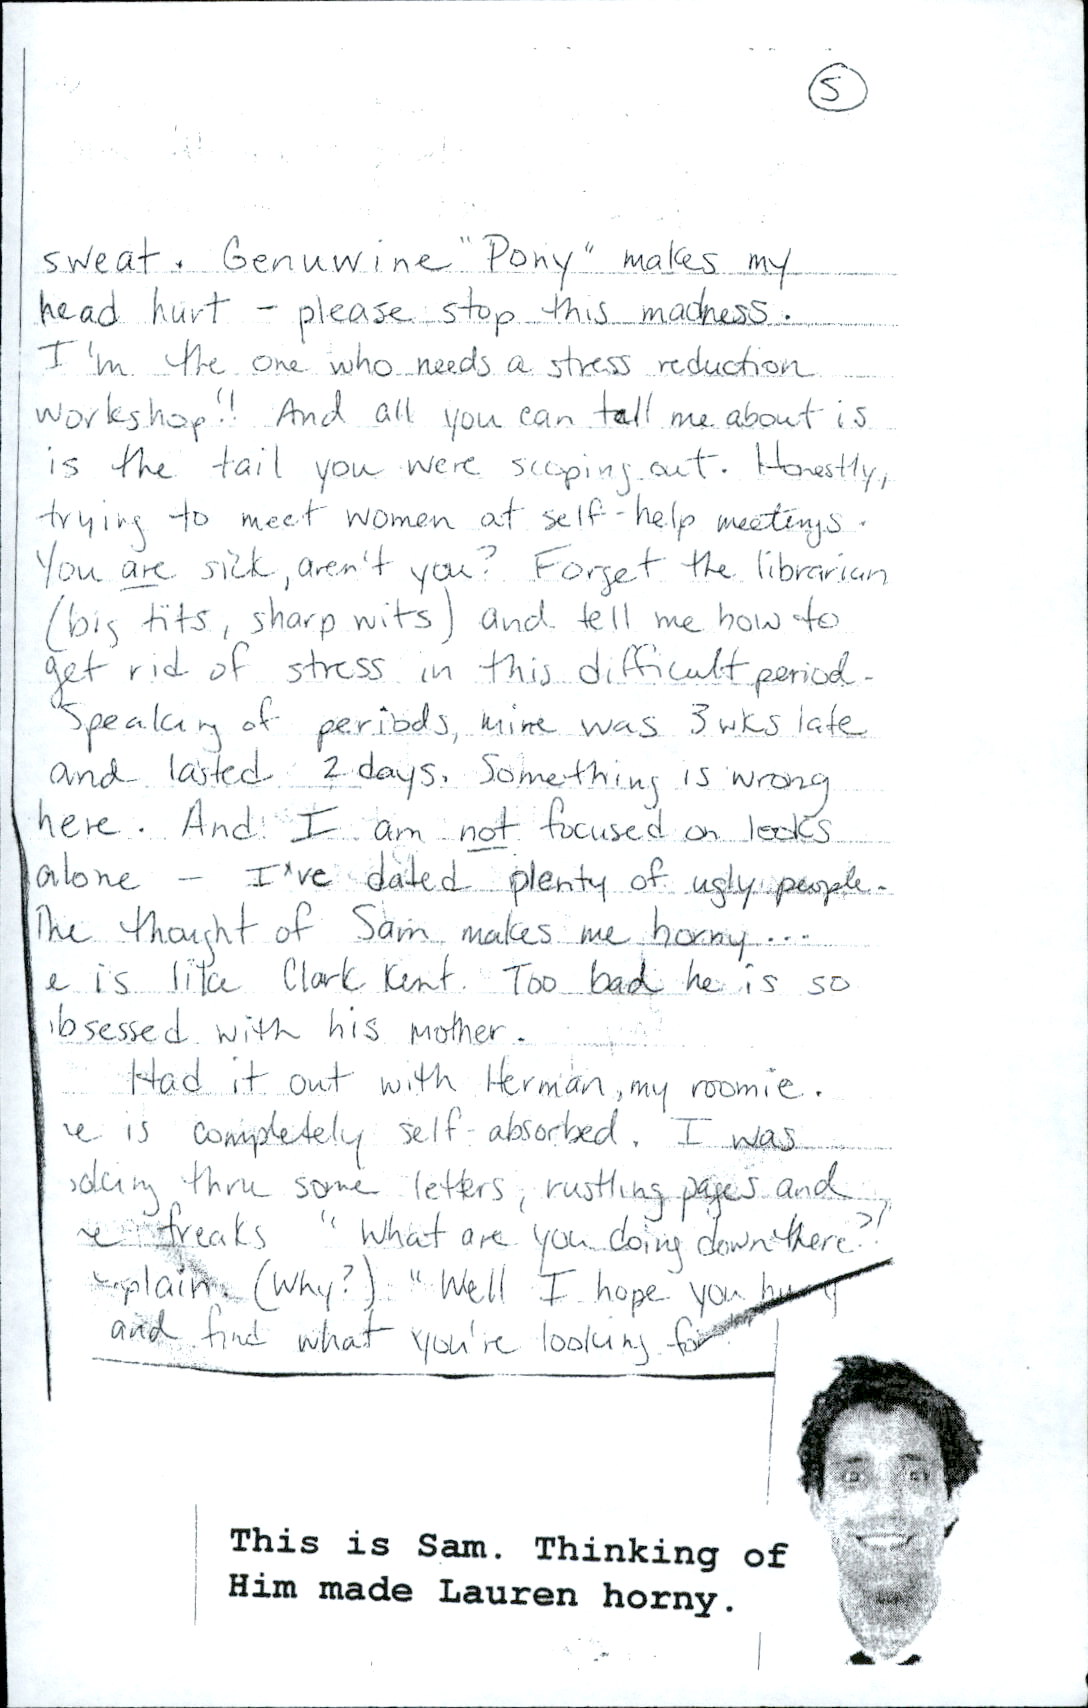 5
sweat. Genuwine "Pony" makes my
head hurt - please stop this madness.
I'm the one who needs a stress reduction
workshop!! And all you can tell me about is
is the tail you were scoping out. Honestly,
trying to meet women at self-help meetings.
You are sick, aren't you? Forget the librarian
(big tits, sharp wits) and tell me how to
get rid of stress in this difficult period.
Speaking of periods, mine was 3 wks late
and lasted 2 days. Something is wrong
here. And I am not focused on looks
alone - I've dated plenty of ugly people.
The thought of Sam makes me horny...
e is like Clark Kent. Too bad he is so
bsessed with his mother.
Had it out with Herman, my roomie.
e is completely self-absorbed. I was
oking thru some letters, rustling pages and
e freaks "What are you doing down there?!
xplain. (Why?) "Well I hope you hurry
and find what you're looking for
This is Sam. Thinking of
Him made Lauren horny.